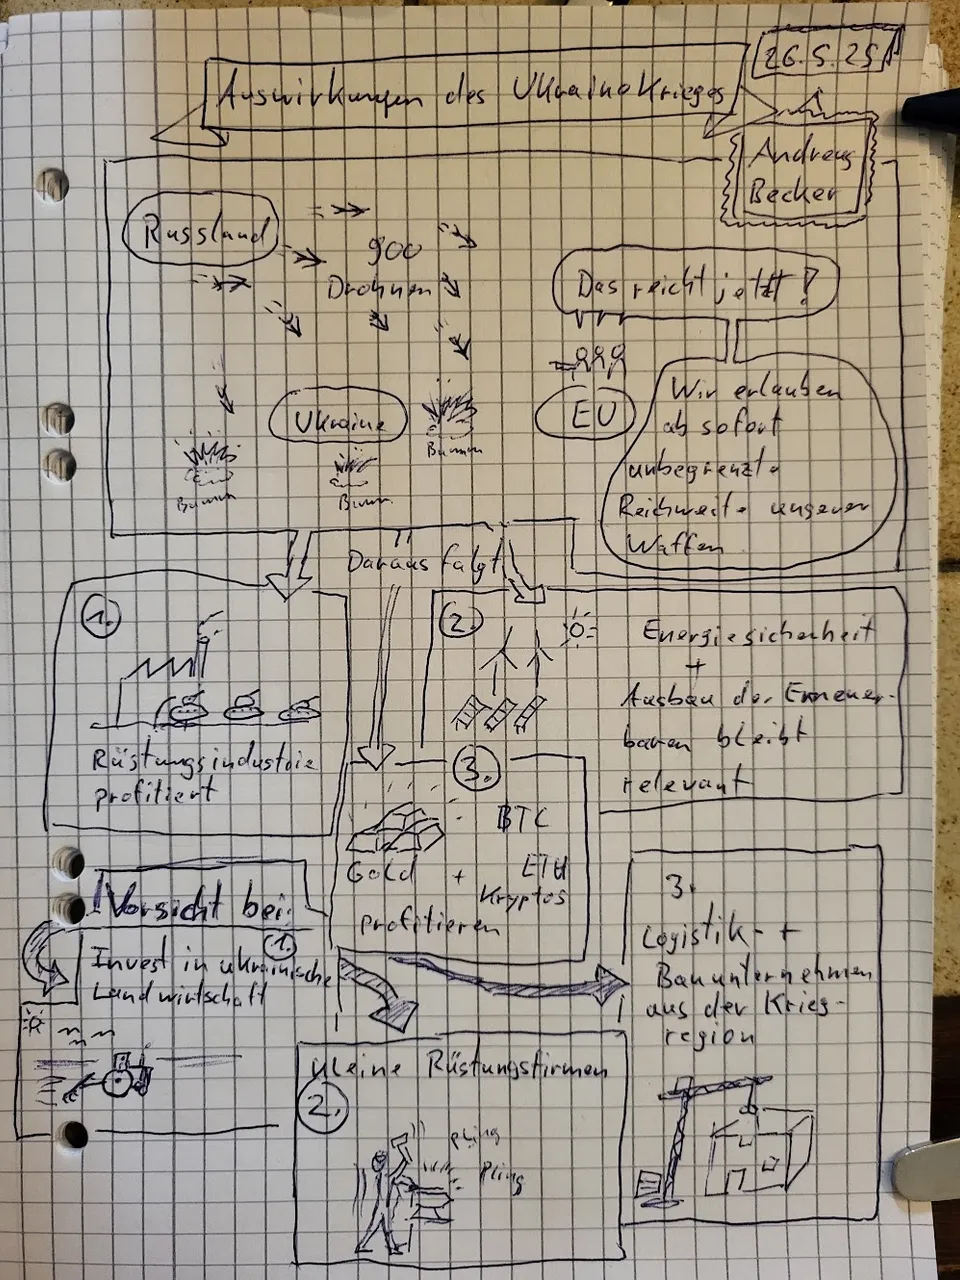 26.5.25
Auswirkungen des Ukraine Krieges
Andreas
Becker
Russland
900
Drohnen
Das reicht jetzt!
Ukraine
EU
Wir erlauben
ab sofort
unbegrenzte
Reichweite unserer
Waffen
Bumm
Bumm
Bumm
Daraus folgt
1.
Rüstungsindustrie
profitiert
2.
Energiesicherheit
+
Ausbau der Erneuer-
baren bleibt
relevant
3.
BTC
Gold + ETH
Kryptos
profitieren
Vorsicht bei:
1.
Invest in ukrainische
Landwirtschaft
Kleine Rüstungsfirmen
2.
pling
pling
3.
Logistik- +
Bauunternehmen
aus der Krieg-
region